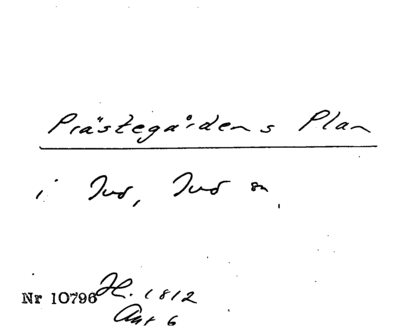 Prästegårdens Plan
i Jud, Jud sn.
Nr 10796 H. 1812
Ant 6